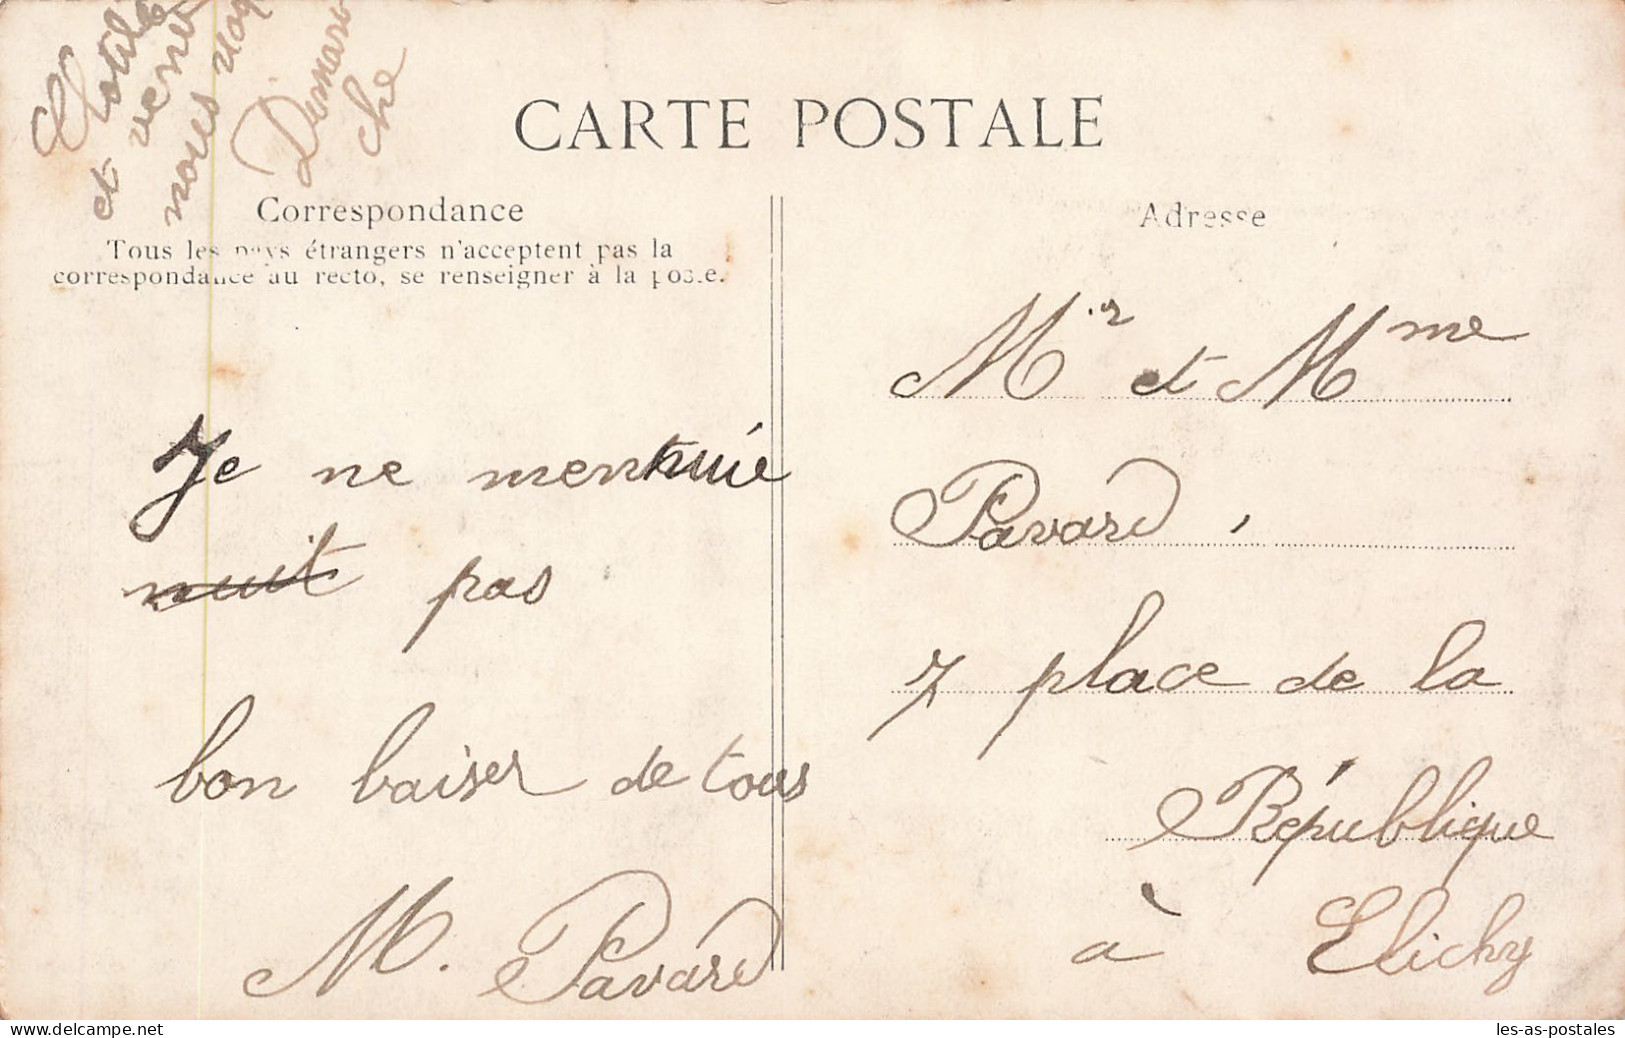 et venez
nous
Dimanche
CARTE POSTALE
Correspondance
Tous les pays étrangers n'acceptent pas la
correspondance au recto, se renseigner à la poste.
Adresse
Je ne mennuie
nuit pas
bon baiser de tous
M. Pavard
Mr et Mme
Pavard,
7 place de la
République
à Clichy
delcampe.net
les-as-postales